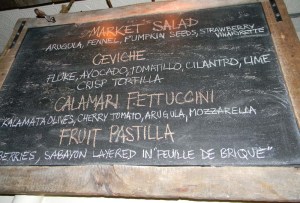 "MARKET" SALAD
ARUGULA, FENNEL, PUMPKIN SEEDS, STRAWBERRY
VINAIGRETTE
CEVICHE
FLUKE, AVOCADO, TOMATILLO, CILANTRO, LIME
CRISP TORTILLA
CALAMARI FETTUCCINI
KALAMATA OLIVES, CHERRY TOMATO, ARUGULA, MOZZARELLA
FRUIT PASTILLA
BERRIES, SABAYON LAYERED IN "FEUILLE DE BRIQUE"